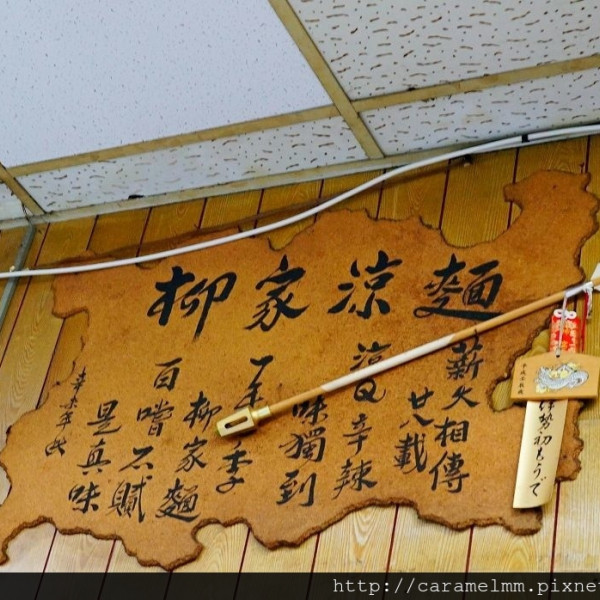 柳家涼麵
薪火相傳
廿八載
辛辣
味獨到
一年
季
柳家麵
百嚐不膩
是真味
伊勢初もうで
http://caramelmm.pixne